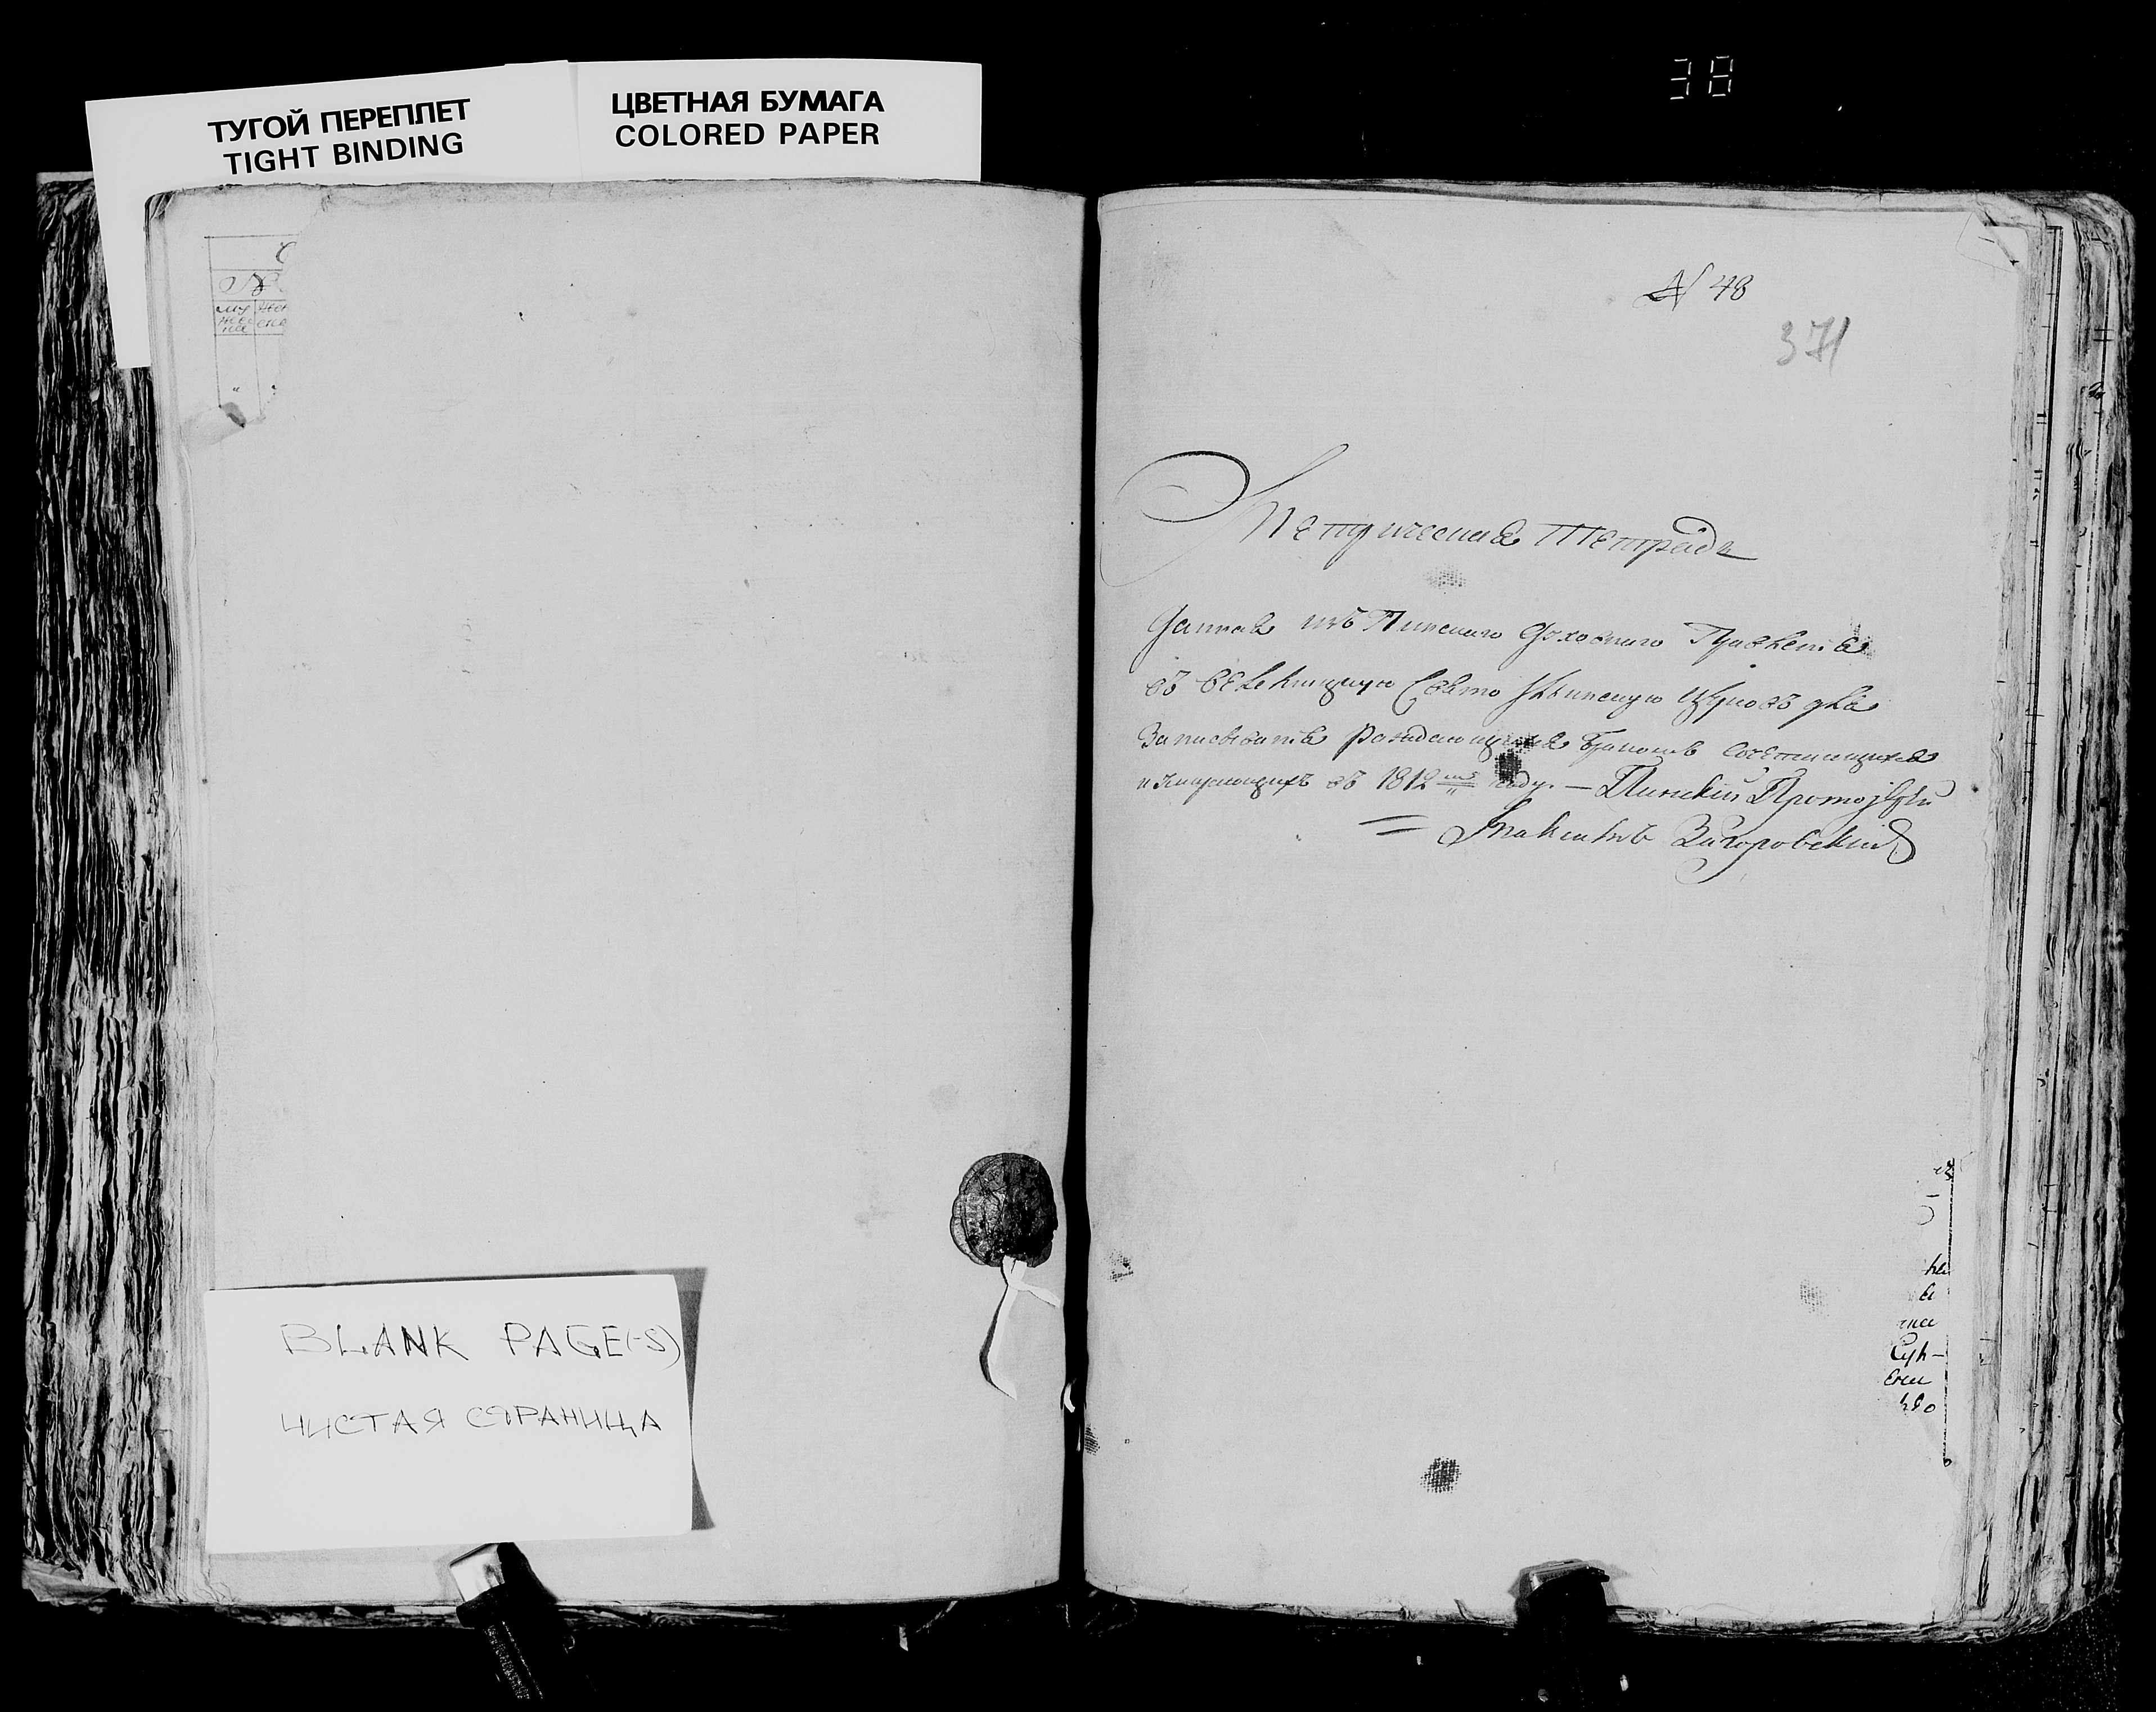 ТУГОЙ ПЕРЕПЛЕТ
TIGHT BINDING
ЦВЕТНАЯ БУМАГА
COLORED PAPER
38
№ 48
371
Метрическая Тетрадь
Данная изъ Пинскаго Духовнаго Правленія
въ Свято Ильинскую Церковъ для
Записыванія Раждающихся Бракомъ Сочетающихся
и Умирающихъ въ 1812 году. — Пинскій Протоіерей
Максимъ Загоровскій
BLANK PAGE(-S)
ЧИСТАЯ СТРАНИЦА